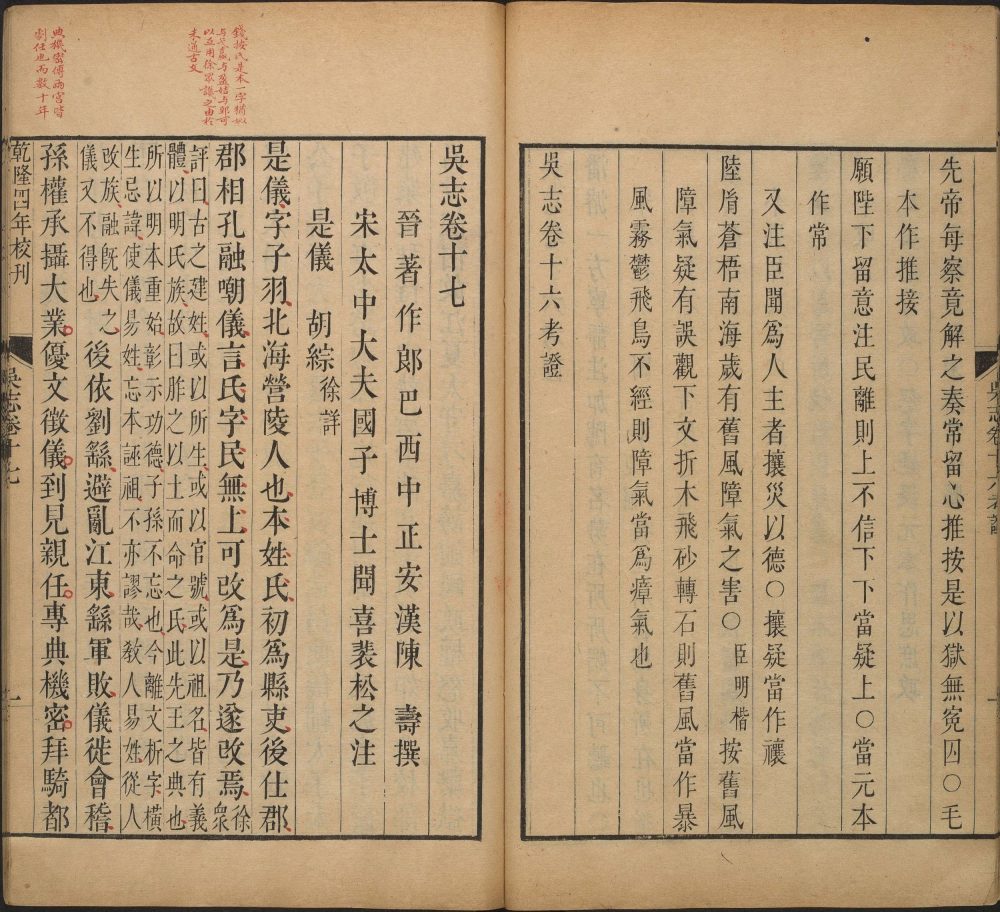 先帝每察竟解之奏常留心推按是以獄無冤囚○毛
本作推接
願陛下留意注民離則上不信下下當疑上○當元本
作常
又注臣聞爲人主者攘災以德○攘疑當作禳
陸𦙍蒼梧南海歲有舊風障氣之害○臣明楷按舊風
障氣疑有誤觀下文折木飛砂轉石則舊風當作暴
風霧鬱飛鳥不經則障氣當爲瘴氣也
吳志卷十六考證
吳志卷十六考證
吳志卷十七
晉著作郎巴西中正安漢陳壽撰
宋太中大夫國子博士聞喜裴松之注
是儀 胡綜徐詳
是儀字子羽北海營陵人也本姓氏初爲縣吏後仕郡
郡相孔融嘲儀言氏字民無上可改爲是乃遂改焉徐衆
評曰古之建姓或以所生或以官號或以祖名皆有義
體以明氏族故曰胙之以土而命之氏此先王之典也
所以明本重始彰示功德子孫不忘也今離文析字橫
生忌諱使儀易姓忘本誣祖不亦謬哉敎人易姓從人
改族融旣失之
儀又不得也後依劉繇避亂江東繇軍敗儀徙會稽
孫權承攝大業優文徵儀到見親任專典機密拜騎都
乾隆四年校刊
吳志卷十七
一
錢按氏是本一字猶姒
與弋嬴與盈姞與郅可
以互用徐眾譏之由於
未通古文
典機密傅兩宮皆
劇任也而數十年